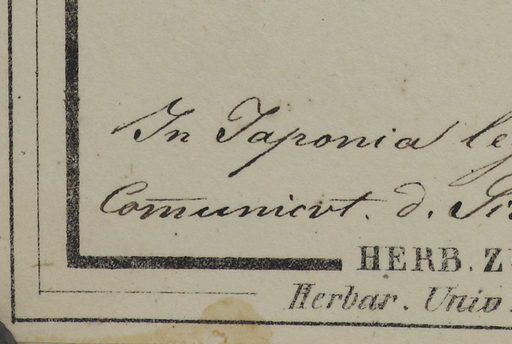 In Japonia leg
Com̅unicvt. d. Si
HERB. Z
Herbar. Univ.